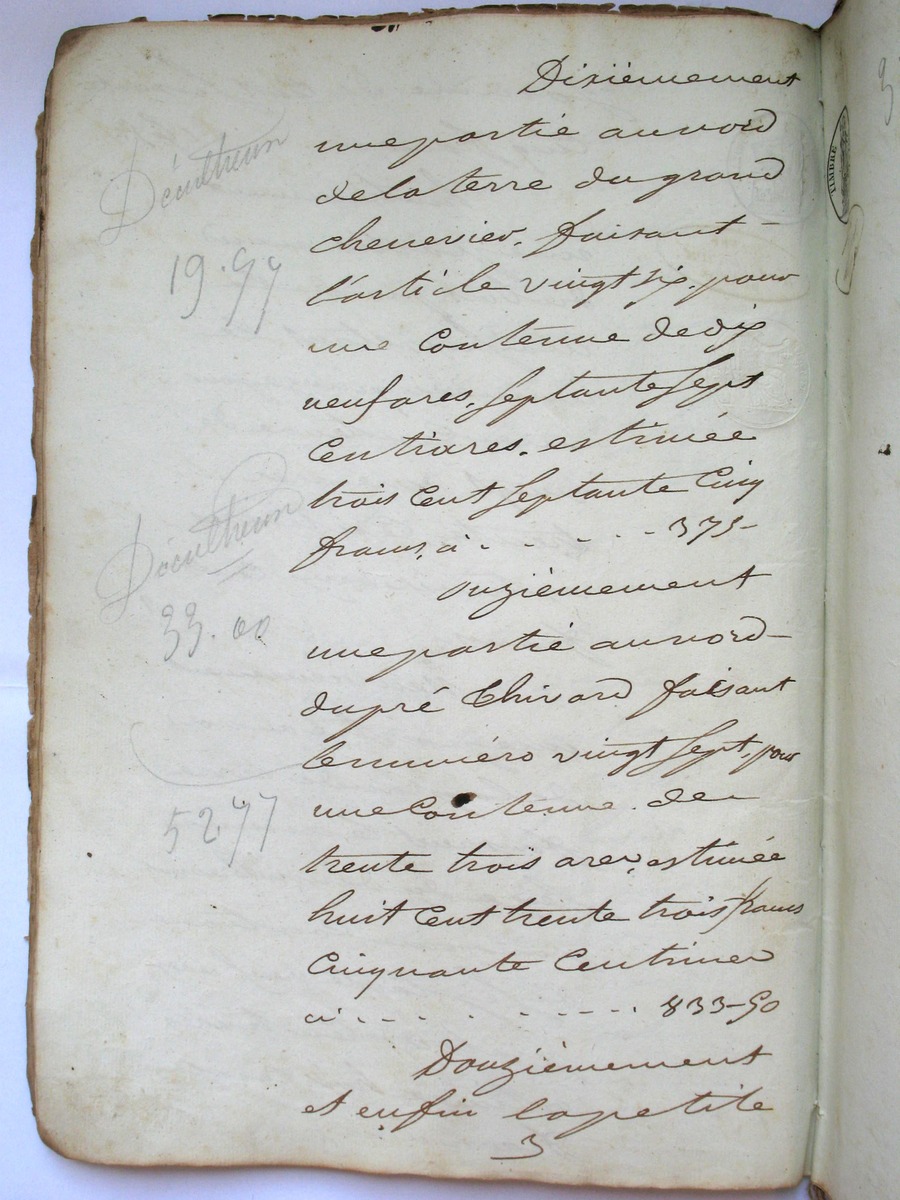 Dixièmement
une partie au nord
de la terre du grand
chenevier, faisant
l'article vingt six, pour
une Contenue de dix
neuf ares, septante sept
Centiares, estimée
trois Cent septante Cinq
francs, à . - - - - - 375-
onzièmement
une partie au nord-
du pré Chivard faisant
le numéro vingt sept, pour
une Contenue de
trente trois ares, estimée
huit Cent trente trois francs
Cinquante Centimes
à . - - - - - - - 833-50
Douzièmement
et enfin la petite
3
19.77
33.00
5277
TIMBRE